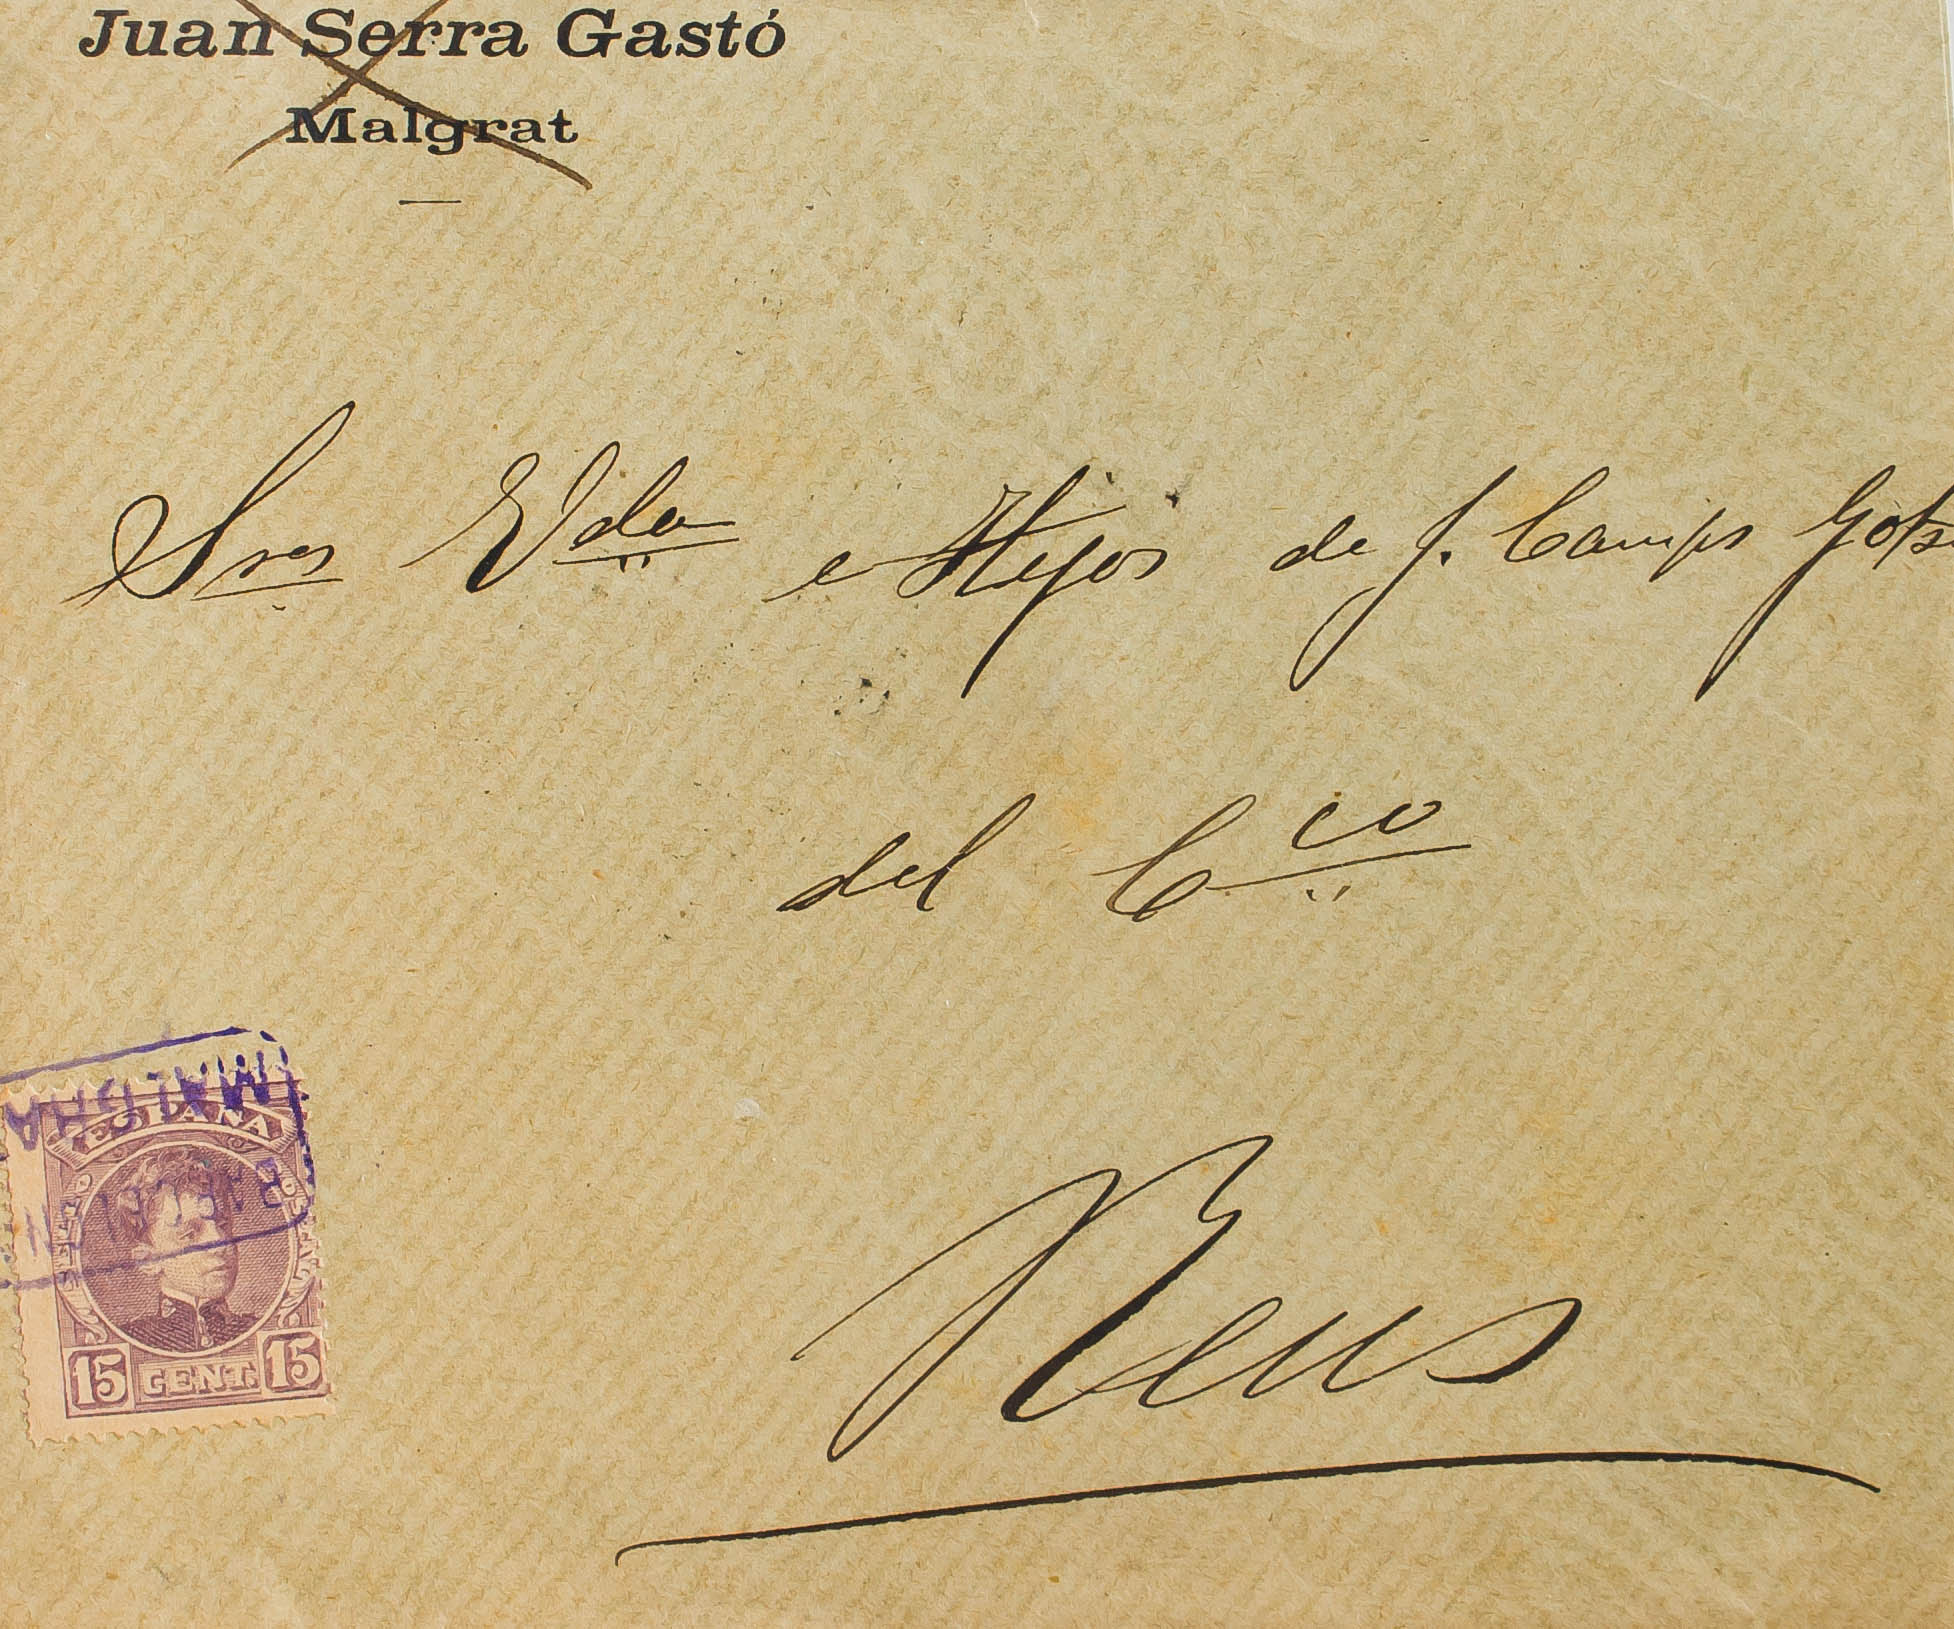 Juan Serra Gastó
Malgrat
Sres Vda e Hijos de J. Camps
del Cco
Reus
MALGRA
BARCELON
ESPAÑA
15 CENT. 15